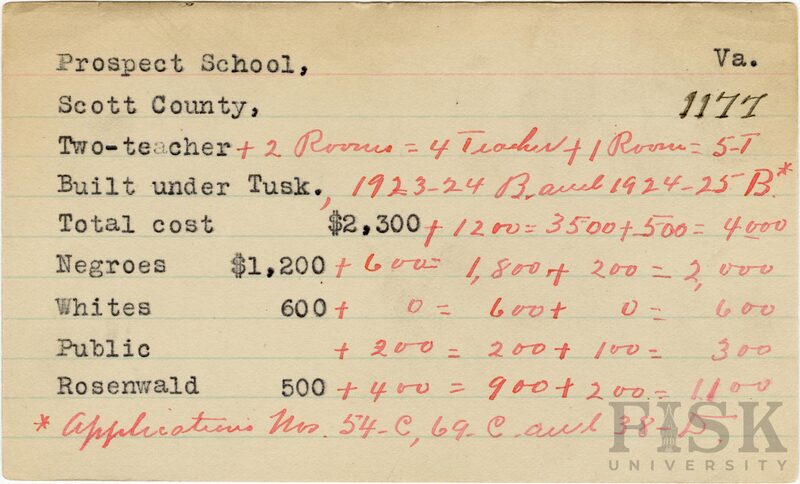 Prospect School, Va.
Scott County, 1177
Two-teacher + 2 Rooms = 4 Teacher + 1 Room = 5-T
Built under Tusk., 1923-24 B. and 1924-25 B.*
Total cost $2,300 + 1200 = 3500 + 500 = 4000
Negroes $1,200 + 600 = 1,800 + 200 = 2,000
Whites 600 + 0 = 600 + 0 = 600
Public + 200 = 200 + 100 = 300
Rosenwald 500 + 400 = 900 + 200 = 1100
* Applications Nos. 54-C, 69-C and 38-D.
FISK
UNIVERSITY